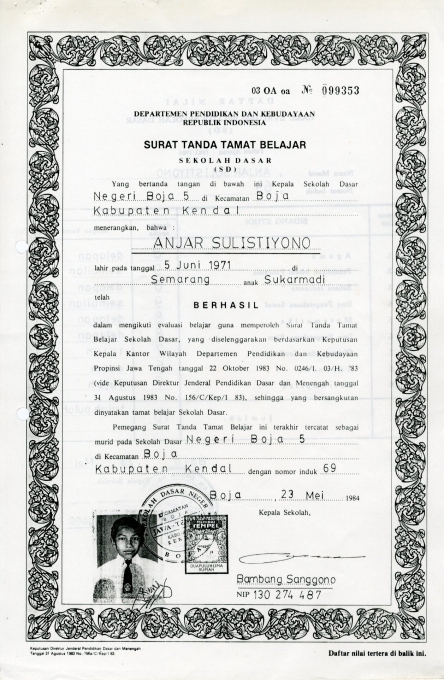 03 OA oa № 099353
DEPARTEMEN PENDIDIKAN DAN KEBUDAYAAN
REPUBLIK INDONESIA
SURAT TANDA TAMAT BELAJAR
SEKOLAH DASAR
(SD)
Yang bertanda tangan di bawah ini Kepala Sekolah Dasar
Negeri Boja 5 di Kecamatan Boja
Kabupaten Kendal
menerangkan, bahwa :
ANJAR SULISTIYONO
lahir pada tanggal 5 Juni 1971 di
Semarang anak Sukarmadi
telah
BERHASIL
dalam mengikuti evaluasi belajar guna memperoleh Surat Tanda Tamat
Belajar Sekolah Dasar, yang diselenggarakan berdasarkan Keputusan
Kepala Kantor Wilayah Departemen Pendidikan dan Kebudayaan
Propinsi Jawa Tengah tanggal 22 Oktober 1983 No. 0246/I. 03/H. '83
(vide Keputusan Direktur Jenderal Pendidikan Dasar dan Menengah tanggal
31 Agustus 1983 No. 156/C/Kep/I 83), sehingga yang bersangkutan
dinyatakan tamat belajar Sekolah Dasar.
Pemegang Surat Tanda Tamat Belajar ini terakhir tercatat sebagai
murid pada Sekolah Dasar Negeri Boja 5
di Kecamatan Boja
Kabupaten Kendal dengan nomor induk 69
Boja, 23 Mei 1984
Kepala Sekolah,
SEKOLAH DASAR NEGERI
KECAMATAN
BOJA
TEMPEL
DUAPULUH LIMA
RUPIAH
Bambang Sanggono
NIP 130 274 487
Keputusan Direktur Jenderal Pendidikan Dasar dan Menengah
Tanggal 31 Agustus 1983 No. 156/C/Kep/I 83
Daftar nilai tertera di balik ini.